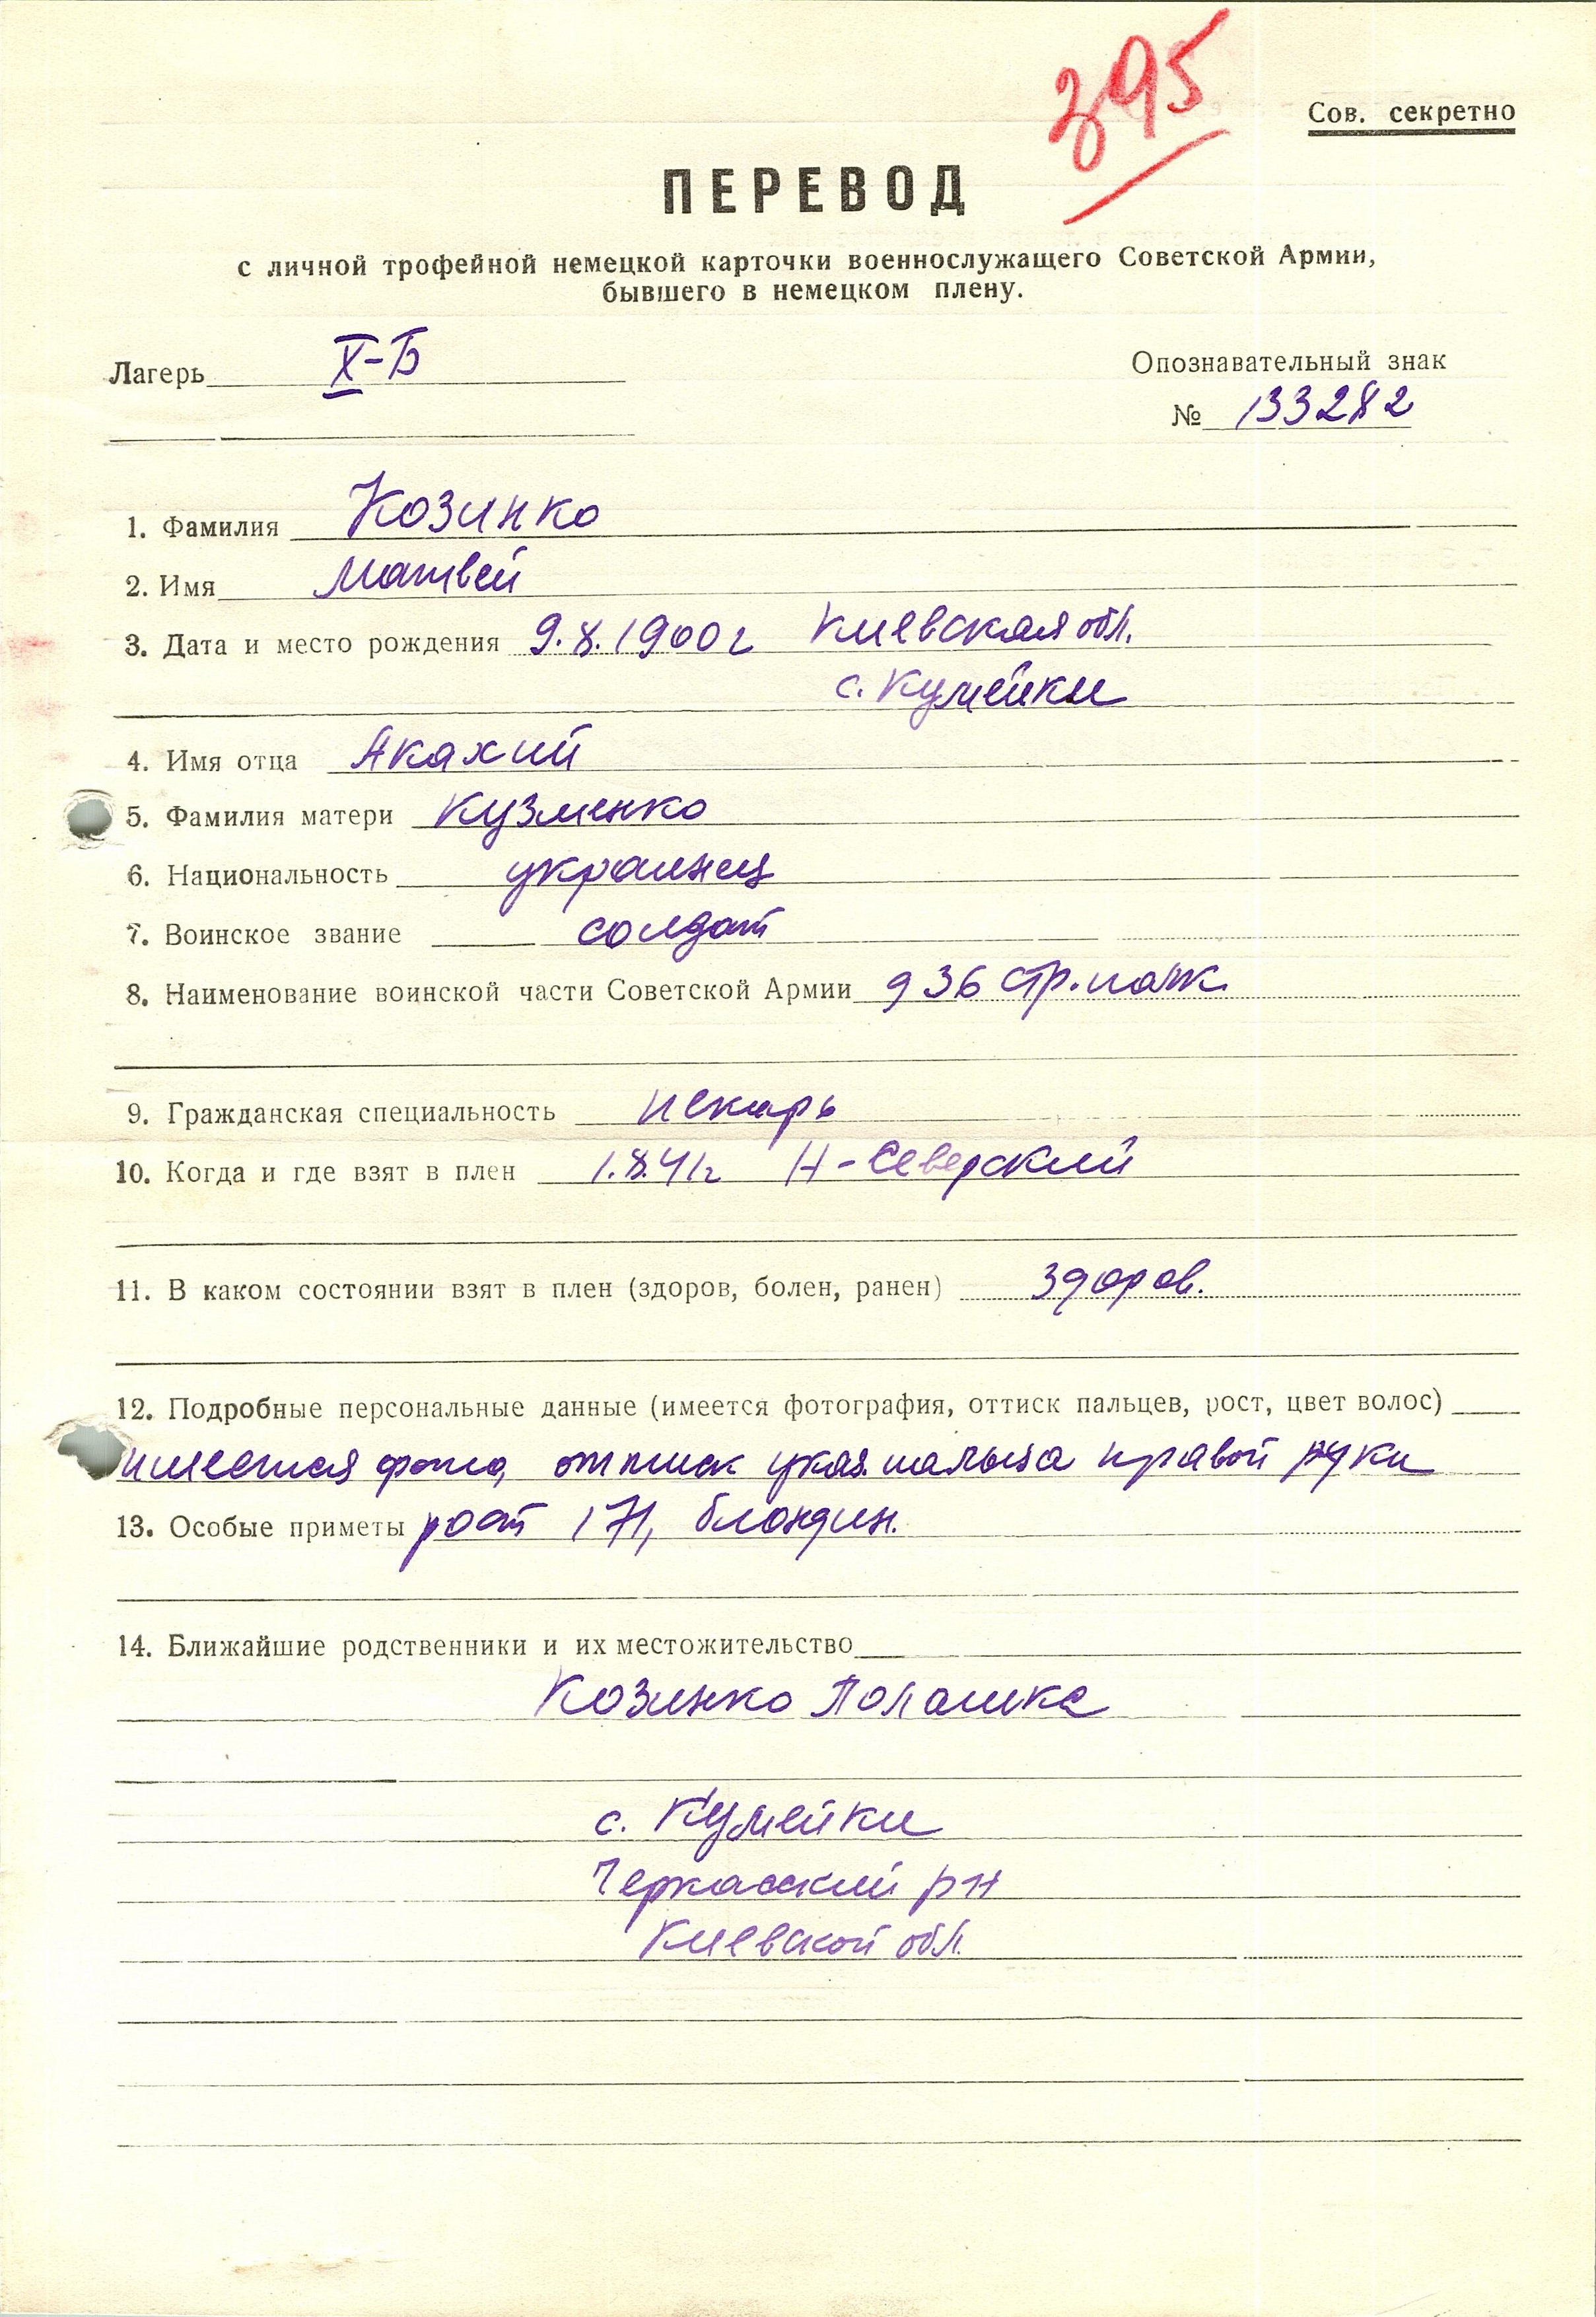 395
Сов. секретно
ПЕРЕВОД
с личной трофейной немецкой карточки военнослужащего Советской Армии,
бывшего в немецком плену.
Лагерь X-Б
Опознавательный знак
№ 133282
1. Фамилия Козинко
2. Имя Матвей
3. Дата и место рождения 9.8.1900г Киевская обл.
с. Кумейки
4. Имя отца Акахий
5. Фамилия матери Кузменко
6. Национальность украинец
7. Воинское звание солдат
8. Наименование воинской части Советской Армии 936 стр. полк
9. Гражданская специальность пекарь
10. Когда и где взят в плен 1.8.41г Н-Северский
11. В каком состоянии взят в плен (здоров, болен, ранен) здоров.
12. Подробные персональные данные (имеется фотография, оттиск пальцев, рост, цвет волос)
имеется фото, оттиск указ. пальца правой руки
13. Особые приметы рост 171, блондин.
14. Ближайшие родственники и их местожительство
Козинко Полашка
с. Кумейки
Черкасский р-н
Киевской обл.